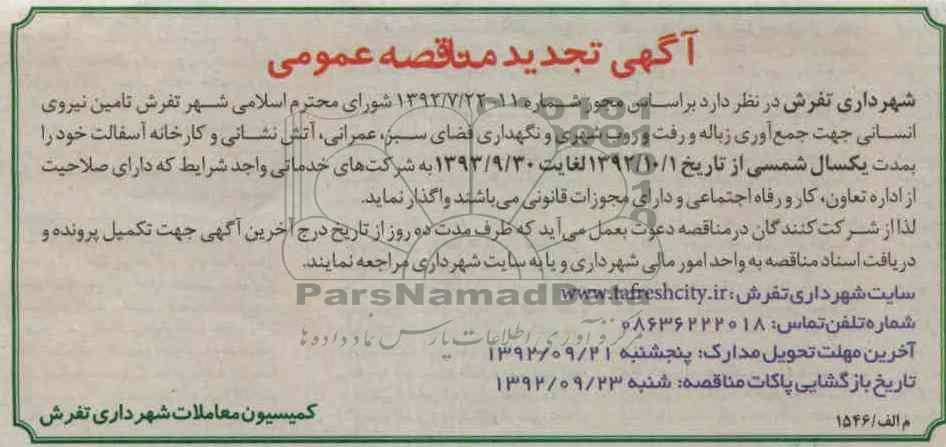 آگهی تجدید مناقصه عمومی
شهرداری تفرش در نظر دارد براساس مجوز شماره ۱۱-۱۳۹۲/۷/۲۲ شورای محترم اسلامی شهر تفرش تامین نیروی
انسانی جهت جمع‌آوری زباله و رفت و روب شهری و نگهداری فضای سبز، عمرانی، آتش نشانی و کارخانه آسفالت خود را
بمدت یکسال شمسی از تاریخ ۱۳۹۲/۱۰/۱ لغایت ۱۳۹۳/۹/۳۰ به شرکت‌های خدماتی واجد شرایط که دارای صلاحیت
از اداره تعاون، کار و رفاه اجتماعی و دارای مجوزات قانونی می‌باشند واگذار نماید.
لذا از شرکت کنندگان در مناقصه دعوت بعمل می‌آید که ظرف مدت ده روز از تاریخ درج آخرین آگهی جهت تکمیل پرونده و
دریافت اسناد مناقصه به واحد امور مالی شهرداری و یا به سایت شهرداری مراجعه نمایند.
ParsNamadData
سایت شهرداری تفرش: www.tafreshcity.ir
مرکز فرآوری اطلاعات پارس نماد داده ها
شماره تلفن تماس: ۰۸۶۳۶۲۲۲۰۱۸
آخرین مهلت تحویل مدارک: پنجشنبه ۱۳۹۲/۰۹/۲۱
تاریخ بازگشایی پاکات مناقصه: شنبه ۱۳۹۲/۰۹/۲۳
کمیسیون معاملات شهرداری تفرش
م الف/۱۵۴۶